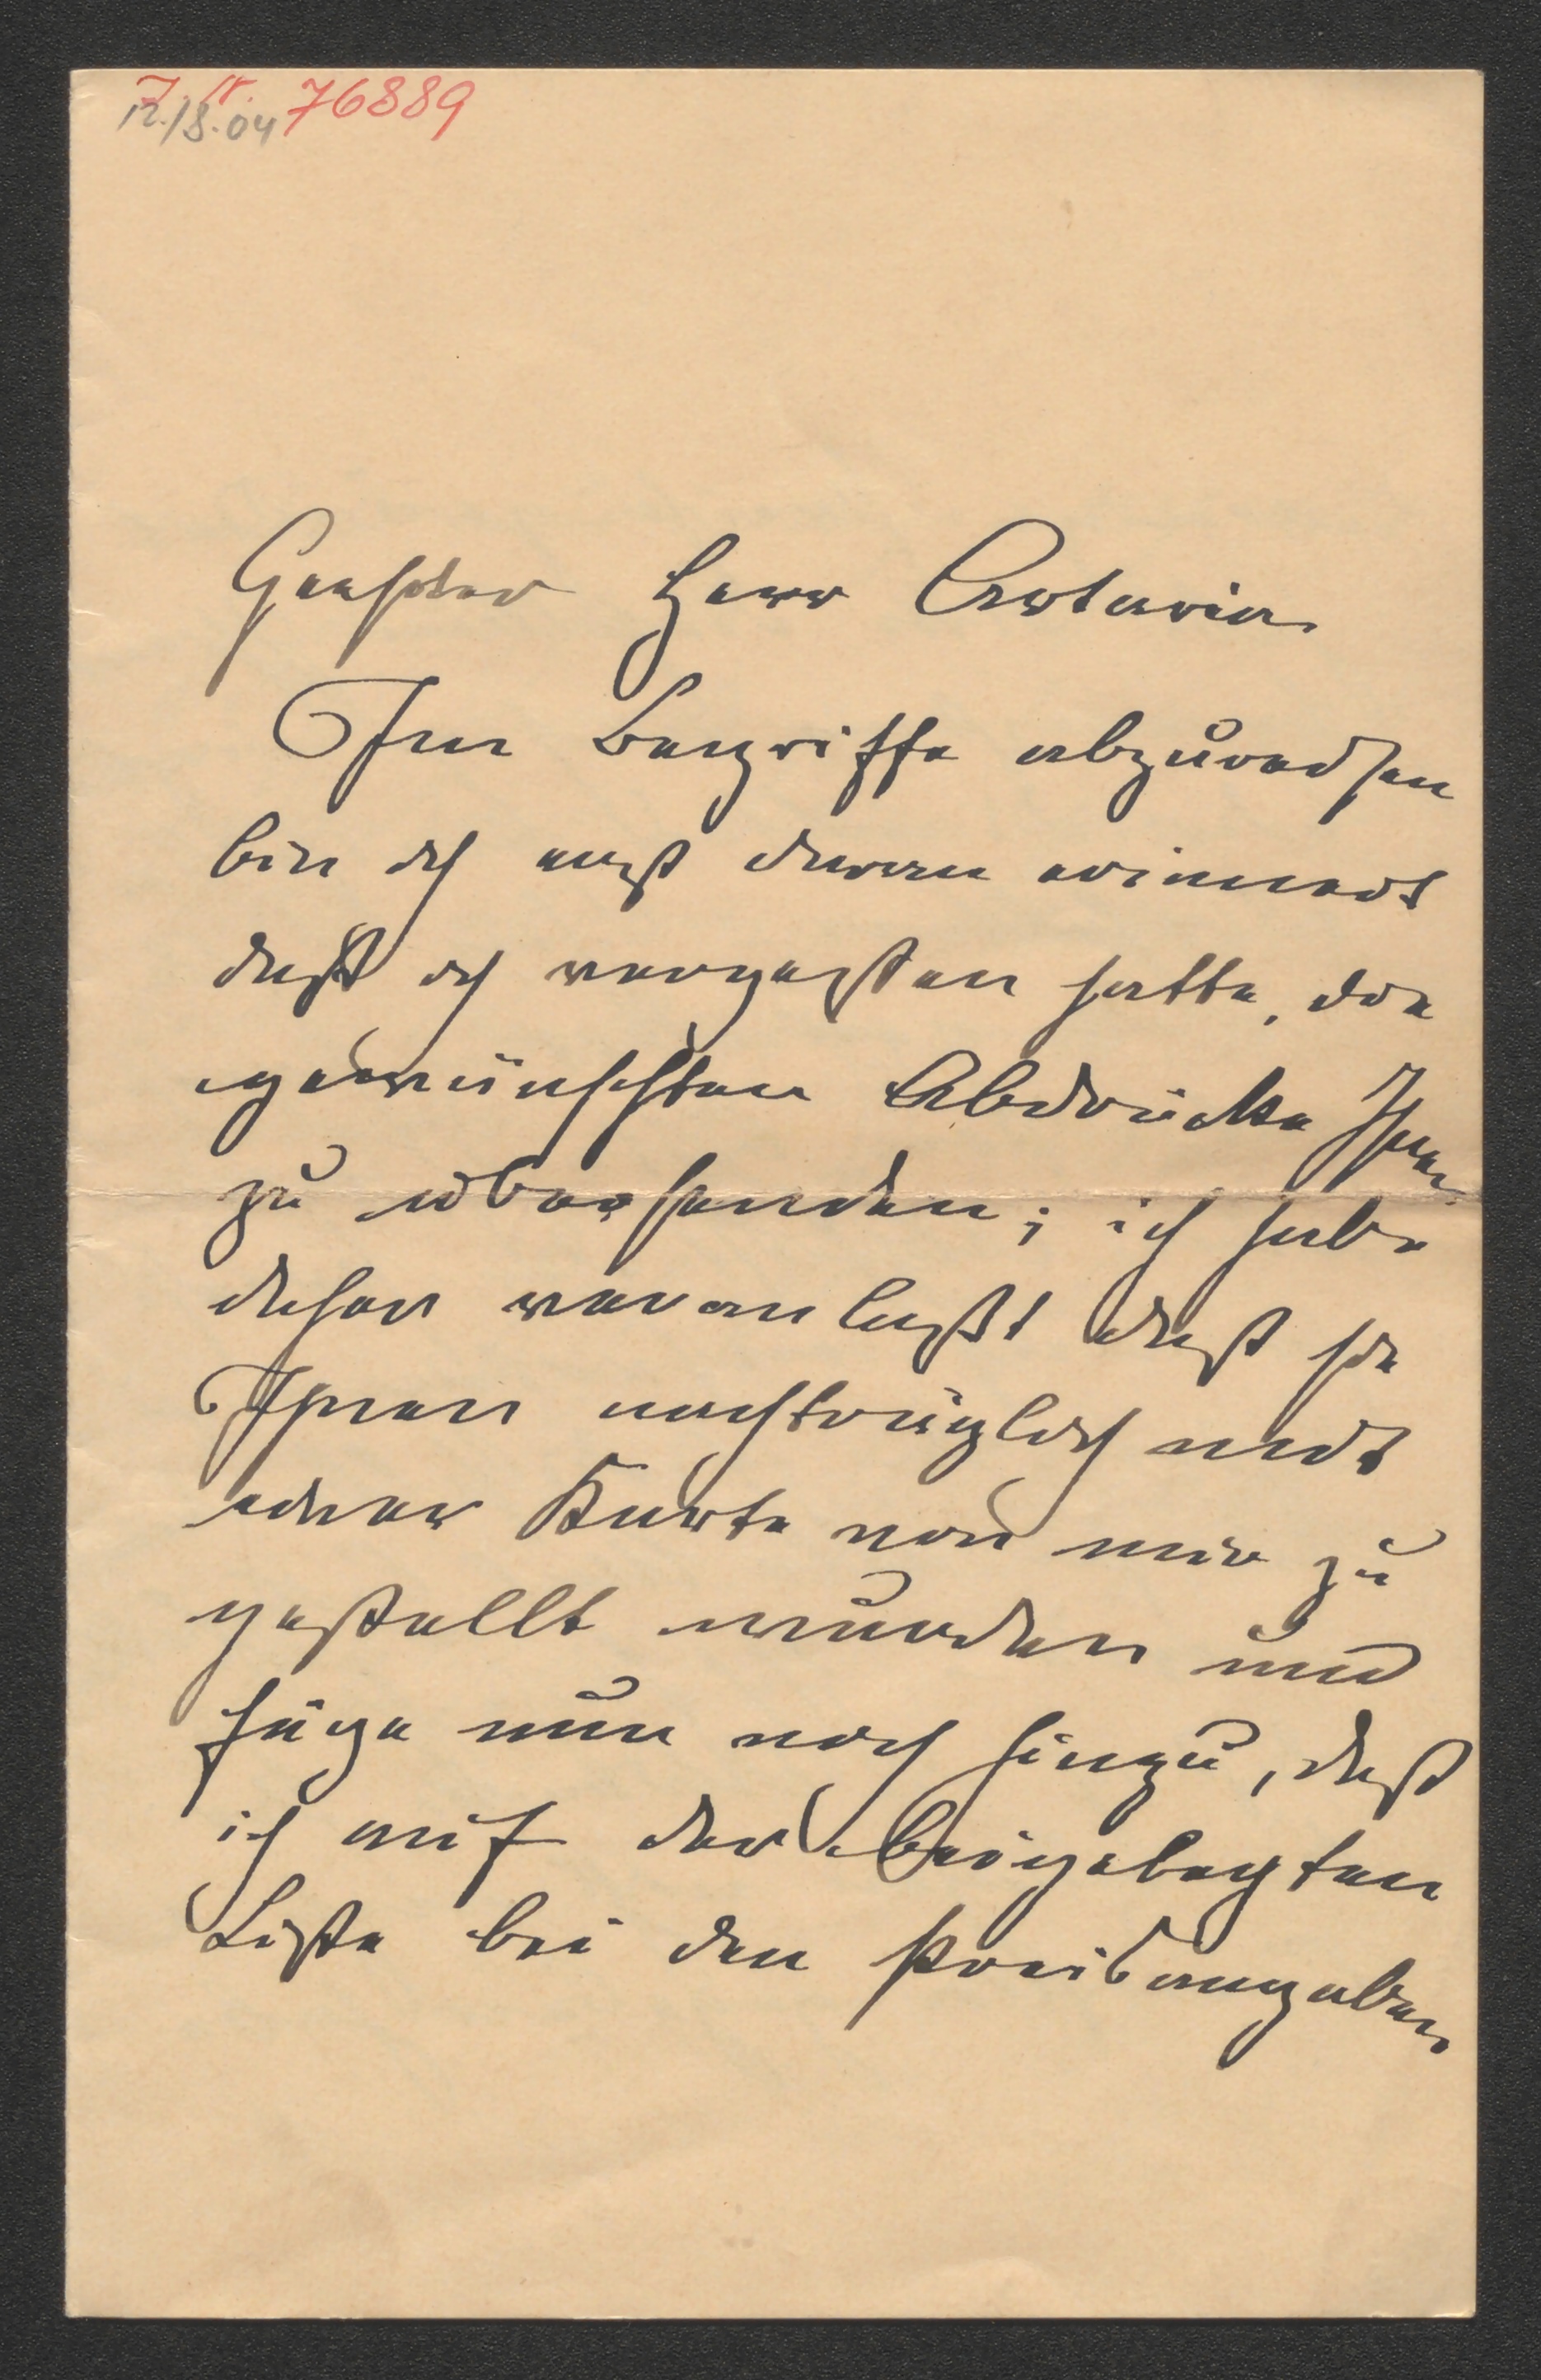 J. N. 76889
12./8.04
Geehrter Herr Artaria
Im Begriffe abzureisen
bin ich erst daran erinnert
daß ich vergessen hatte, die
gewünschten Abdrücke Ihnen
zu übersenden; ich habe
daher veranlaßt daß sie
Ihnen nachträglich mit
einer Karte von mir zu
gestellt wurden und
füge nun noch hinzu, daß
ich auf der beigelegten
Liste bei den Preisangaben